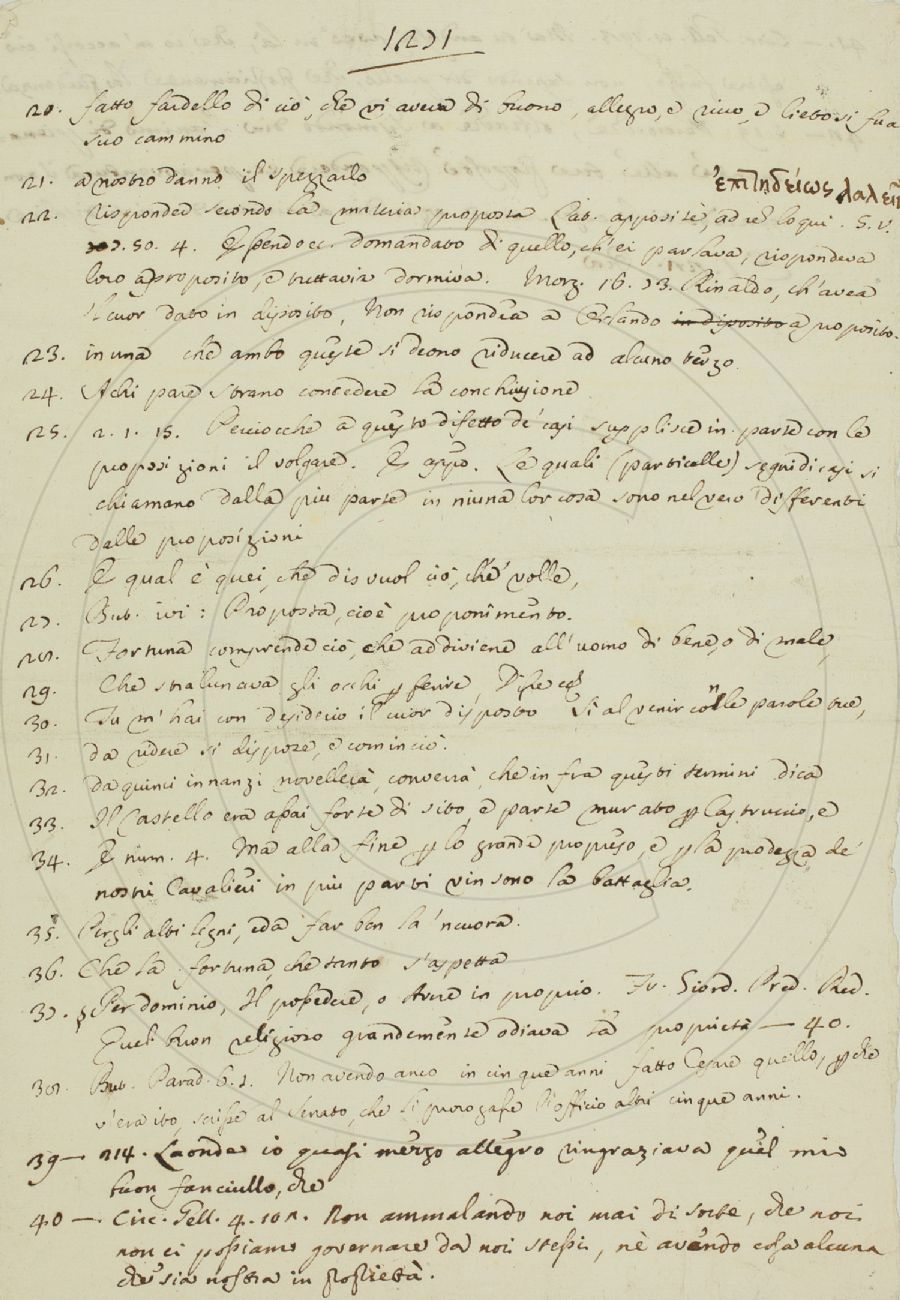 1271
20. fatto fardello di ciò, che vi aveva di buono, allegro, e ricco, e lieto si fu a
suo cammino
21. a nostro danno il spezzarlo
ἐπιτηδείως λαλεῖν
22. risponder secondo la materia proposta Lat. appositè, ad rē loqui. S. V.
50. 4. E Pendo ec. domandato di quello, ch'ei parlava, rispondeva
loro a proposito, e tuttavia dormiva. Morg. 16. 73. Rinaldo, ch'avea
il cuor dato in diposito, Non rispondea a Orlando in diposito a proposito.
23. in una che ambo queste si deono riducere ad alcuno terzo
24. A chi pare strano concedere la conchiusione
25. 2. 1. 15. Perciocchè a questo difetto de' casi supplisce in parte con le
proposizioni il volgare. E app. Le quali (particelle) segni di casi si
chiamano dalla più parte in niuna lor cosa sono nel vero differenti
dalle proposizioni
26. E qual è quei, che disvuol ciò, ch'e' volle,
27. But. ivi: Proposta, cioè proponimento.
28. Fortuna comprende ciò, che addiviene all'uomo di bene, o di male,
29. Che stralunava gli occhi p ferire, Disse
30. Tu m'hai con desiderio il cuor disposto Sì al venir con le parole tue,
31. da ridere si dispose, e cominciò.
32. da quinci innanzi novellerà, converrà, che infra questi termini dica
33. Il Castello era assai forte di sito, e parte murato p Castruccio, e
34. E num. 4. Ma alla fine p lo grande propeso, e p la prodezza de'
nostri Cavalieri in più parti vinsono la battaglia.
35. Per gli altri legni, ed a far ben la 'ncuora.
36. Che la fortuna, che tanto s'aspetta
37. § Per dominio, Il possedere, o Avere in proprio. Fr. Giord. Pred. Red.
Quel buon religioso grandemente odiava la proprietà — 40.
38. But. Parad. 6. 1. Non avendo anco in cinque anni fatto Cesare quello, p che
v'era ito, scrisse al Senato, che si prorogasse l'officio altri cinque anni.
39 — 214. Laonde io quasi mezzo allegro ringraziava quel mio
buon fanciullo, che
40 — Circ. Gell. 4. 101. Non ammalando noi mai di sorte, che noi
non ci possiamo governare da noi stessi, nè avendo cosa alcuna
che sia nostra in proprietà.